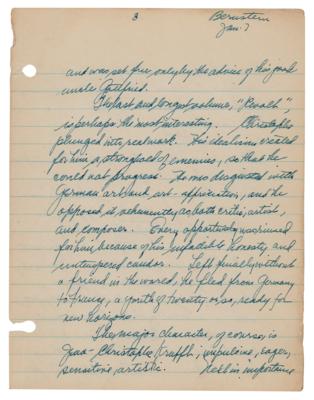 3
Bernstein
Jan. 7
and was set free only by the advice of his good
uncle Gottfried.
The last and longest volume, "Revolt",
is perhaps the most interesting. Christophe
plunged into real work. His idealism created
for him a stronghold of enemies, so that he
could not progress. He was disgusted with
German art and art-appreciation, and he
opposed it vehemently as both critic, artist,
and composer. Every opportunity was ruined
for him because of his implacable honesty and
untempered candor. Left finally without
a friend in the world, he fled from Germany
to France, a youth of twenty or so, ready for
new horizons.
The major character, of course, is
Jean-Christophe Krafft; impulsive, eager,
sensitive, artistic. Next in importance